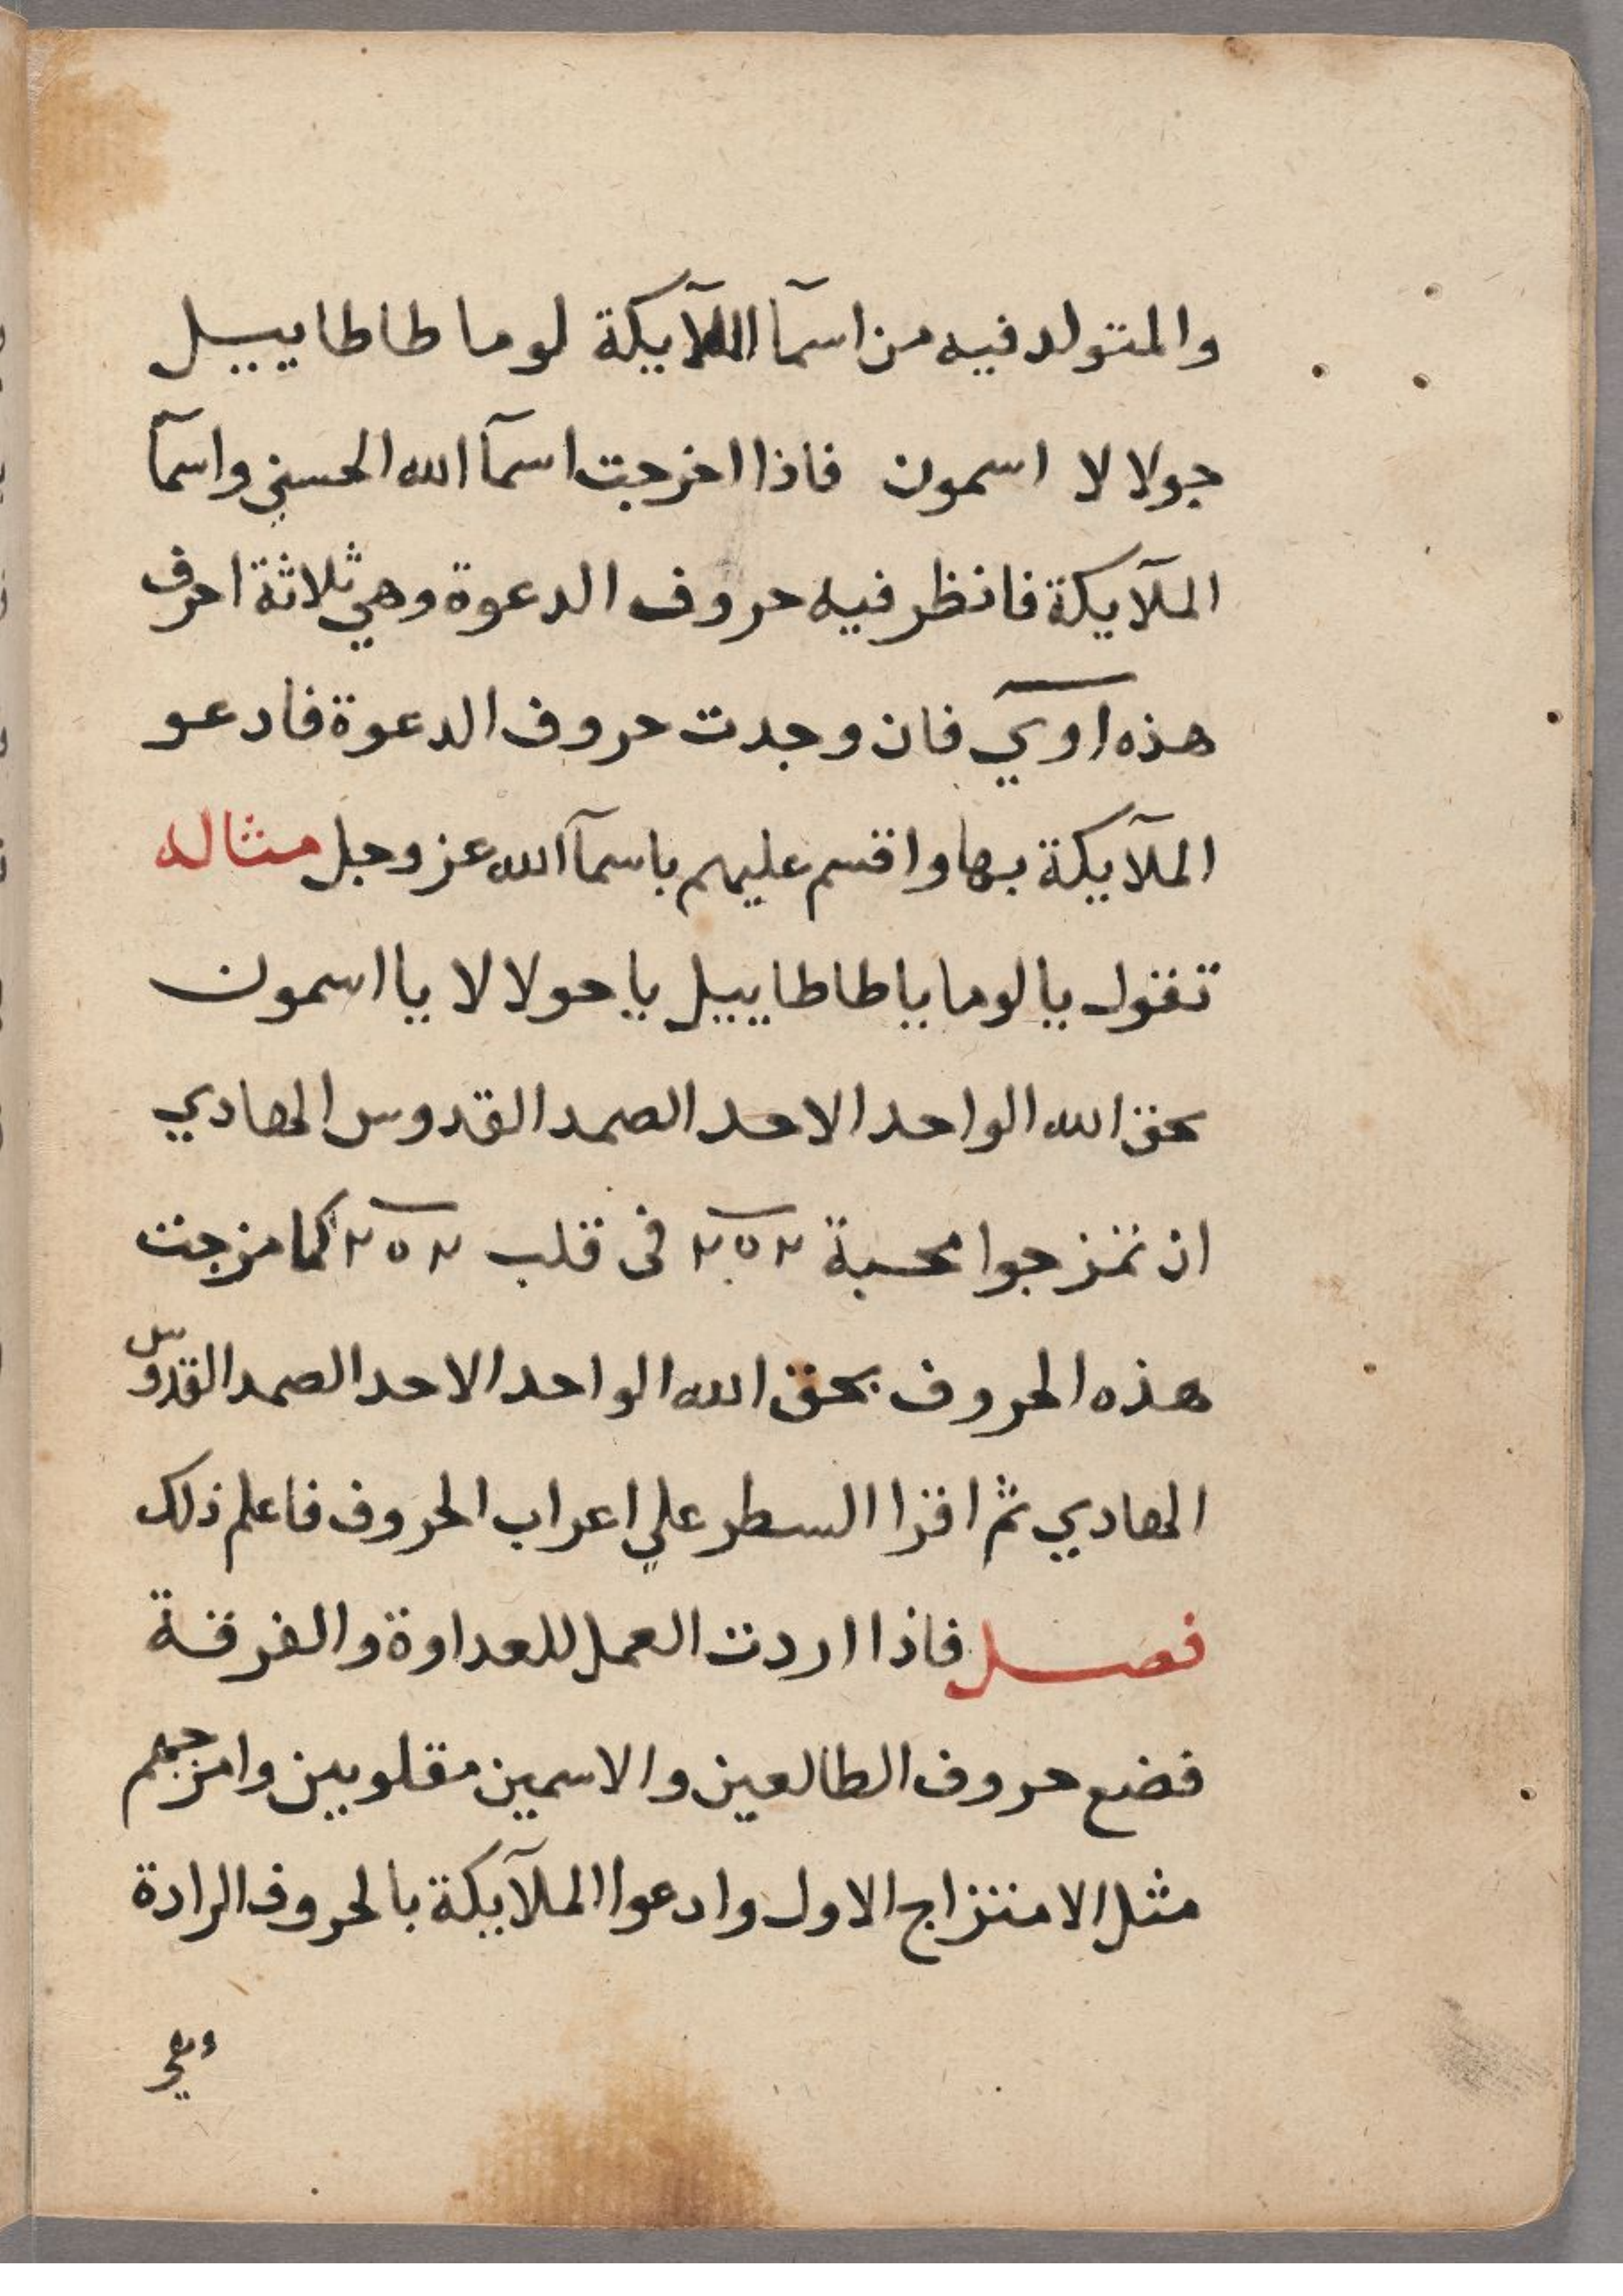 والمتولد فيه من اسمآ الملآيكة لوما طاطاييل
جولالا اسمون فاذا اخرجت اسمآ الله الحسني واسمآ
الملآيكة فانظر فيه حروف الدعوة وهي ثلاثة احرف
هذه اوي فان وجدت حروف الدعوة فادعو
الملآيكة بها واقسم عليهم باسمآ الله عز وجل مثاله
تقول يا لوما يا طاطاييل يا حولالا يا اسمون
بحق الله الواحد الاحد الصمد القدوس الهادي
ان تمزجوا محبة في قلب كما مزجت
هذه الحروف بحق الله الواحد الاحد الصمد القدوس
الهادي ثم اقرا السطر علي اعراب الحروف فاعلم ذلك
فصل فاذا اردت العمل للعداوة والفرقة
فضع حروف الطالعين والاسمين مقلوبين وامزجهم
مثل الامتزاج الاول وادعوا الملآيكة بالحروف الرادة
وهي